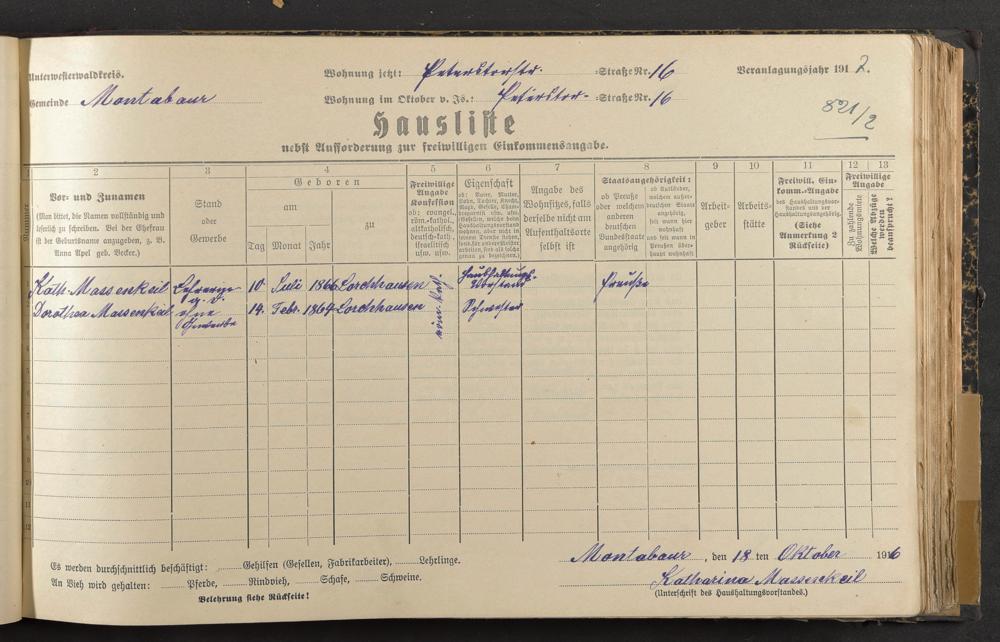 Unterwesterwaldkreis. Wohnung jetzt: Peterstorstr. Straße Nr. 16 Veranlagungsjahr 1917.
Gemeinde Montabaur Wohnung im Oktober v. Js.: Peterstor- Straße Nr. 16
821/2
Hausliste
nebst Aufforderung zur freiwilligen Einkommensangabe.
1 2 3 4 5 6 7 8 9 10 11 12 13
Nummer
Vor- und Zunamen
(Man bittet, die Namen vollständig und
leserlich zu schreiben. Bei der Ehefrau
ist der Geburtsname anzugeben, z. B.
Anna Apel geb. Becker.)
Stand
oder
Gewerbe
Geboren
am
Tag Monat Jahr
zu
Freiwillige
Angabe
Konfession
ob: evangel.,
röm.-kathol.,
altkatholisch,
deutsch-kath.,
israelitisch
usw. usw.
Eigenschaft
Angabe des
Wohnsitzes, falls
derselbe nicht am
Aufenthaltsorte
selbst ist
Staatsangehörigkeit:
ob Preuße
oder welchem
anderen
deutschen
Bundesstaate
angehörig
Arbeit-
geber
Arbeits-
stätte
Freiwill. Ein-
komm.-Angabe
des Haushaltungsvor-
standes und der
Haushaltungsangehörig.
(Siehe
Anmerkung 2
Rückseite)
Freiwillige
Angabe
Zu zahlende
Wohnungsmiete
Welche Abzüge
werden
beansprucht?
Kath. Massenkeil Lehrerin a. D. 10 Juli 1866 Lorchhausen röm. kath. Haushaltungs-Vorstand Preuße
Dorothea Massenkeil ohne Gewerbe 14. Febr. 1864 Lorchhausen Schwester
Es werden durchschnittlich beschäftigt: Gehilfen (Gesellen, Fabrikarbeiter), Lehrlinge.
An Vieh wird gehalten: Pferde, Rindvieh, Schafe, Schweine.
Belehrung siehe Rückseite!
Montabaur, den 18 ten Oktober 1916
Katharina Massenkeil
(Unterschrift des Haushaltungsvorstandes.)